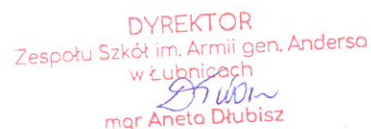 DYREKTOR
Zespołu Szkół im. Armii gen. Andersa
w Łubnicach
mgr Aneta Dłubisz